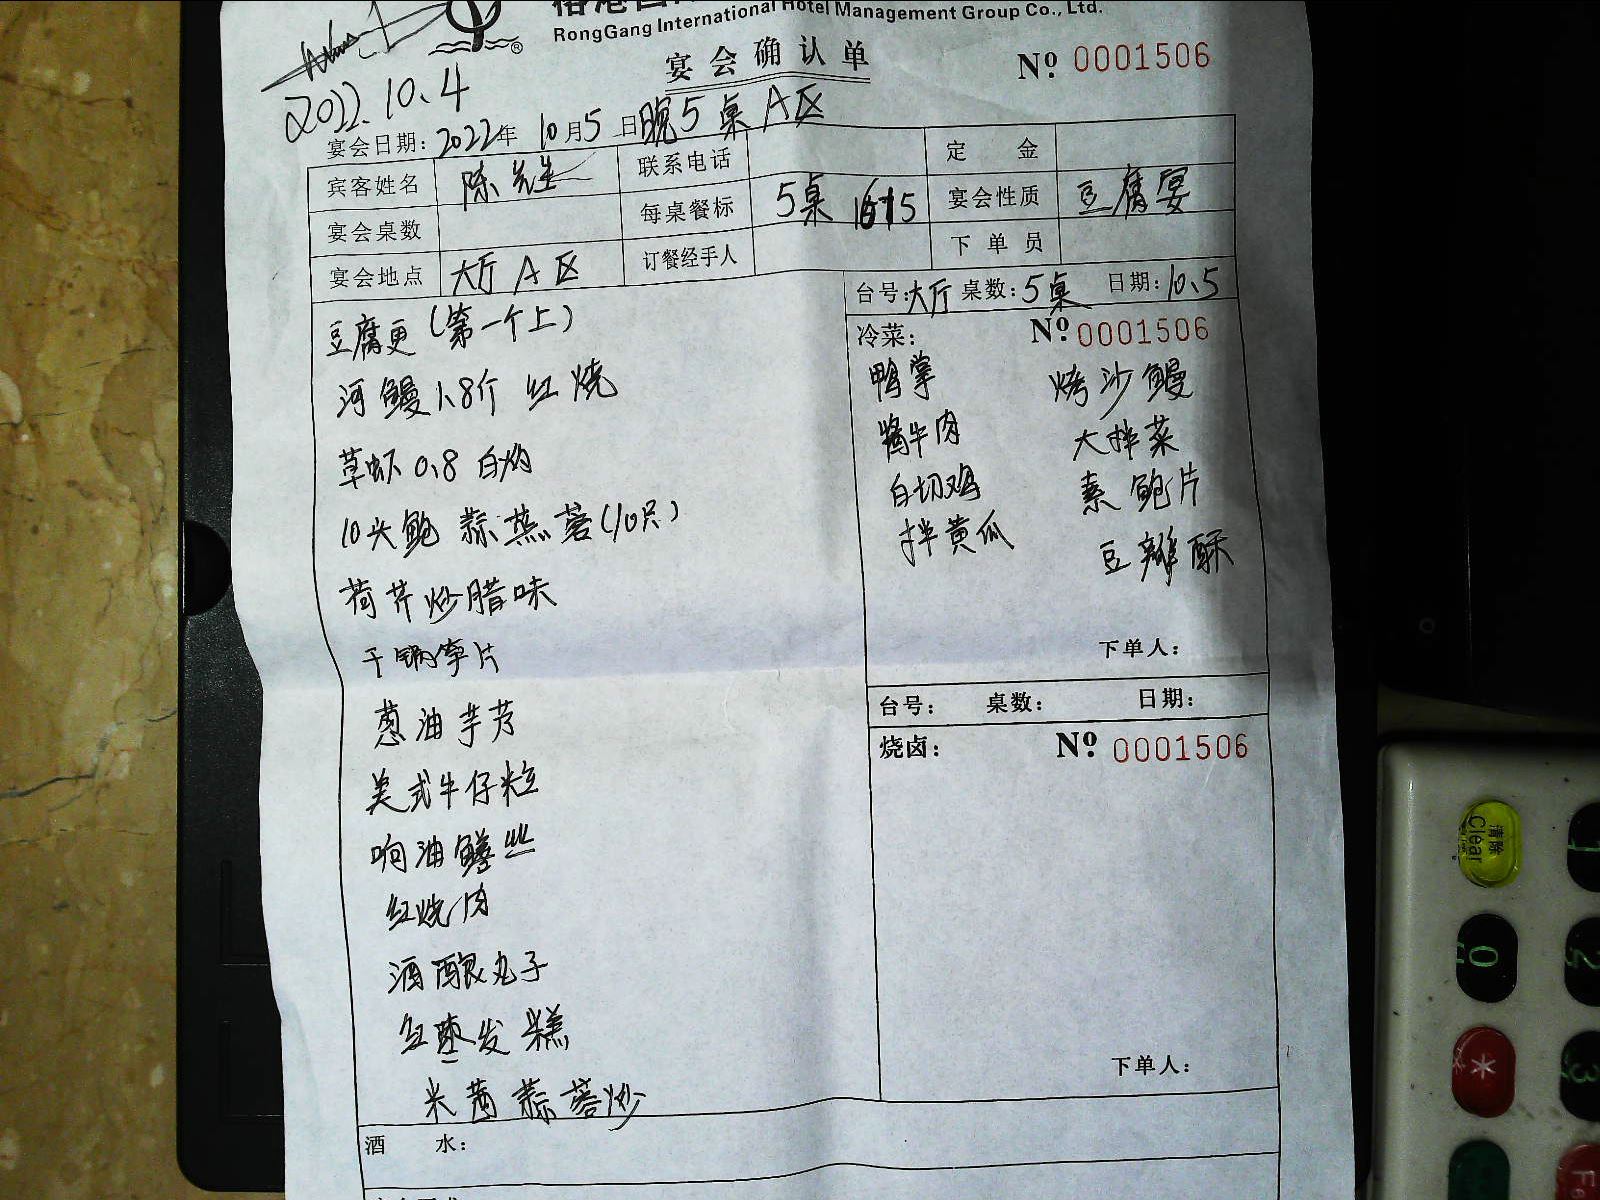 RongGang International Hotel Management Group Co., Ltd.
宴会确认单
№ 0001506
2022.10.4
宴会日期: 2022年 10月5日晚5桌A区
宾客姓名 陈先生 联系电话 定 金
宴会桌数 每桌餐标 5桌 1675 宴会性质 豆腐宴
宴会地点 大厅A区 订餐经手人 下单员
豆腐更(第一个上)
河鳗1.8斤 红烧
草虾0.8 白灼
10头鲍 蒜蒸蓉(10只)
荷芹炒腊味
干锅笋片
葱油芋艿
美式牛仔粒
响油鳝丝
红烧肉
酒酿丸子
红枣发糕
米苋蒜蓉炒
台号:大厅 桌数:5桌 日期:10.5
冷菜: № 0001506
鸭掌 烤沙鳗
酱牛肉 大拌菜
白切鸡 素鲍片
拌黄瓜 豆瓣酥
下单人:
台号: 桌数: 日期:
烧卤: № 0001506
下单人:
酒 水:
清除
Clear
1
0
2
*
3